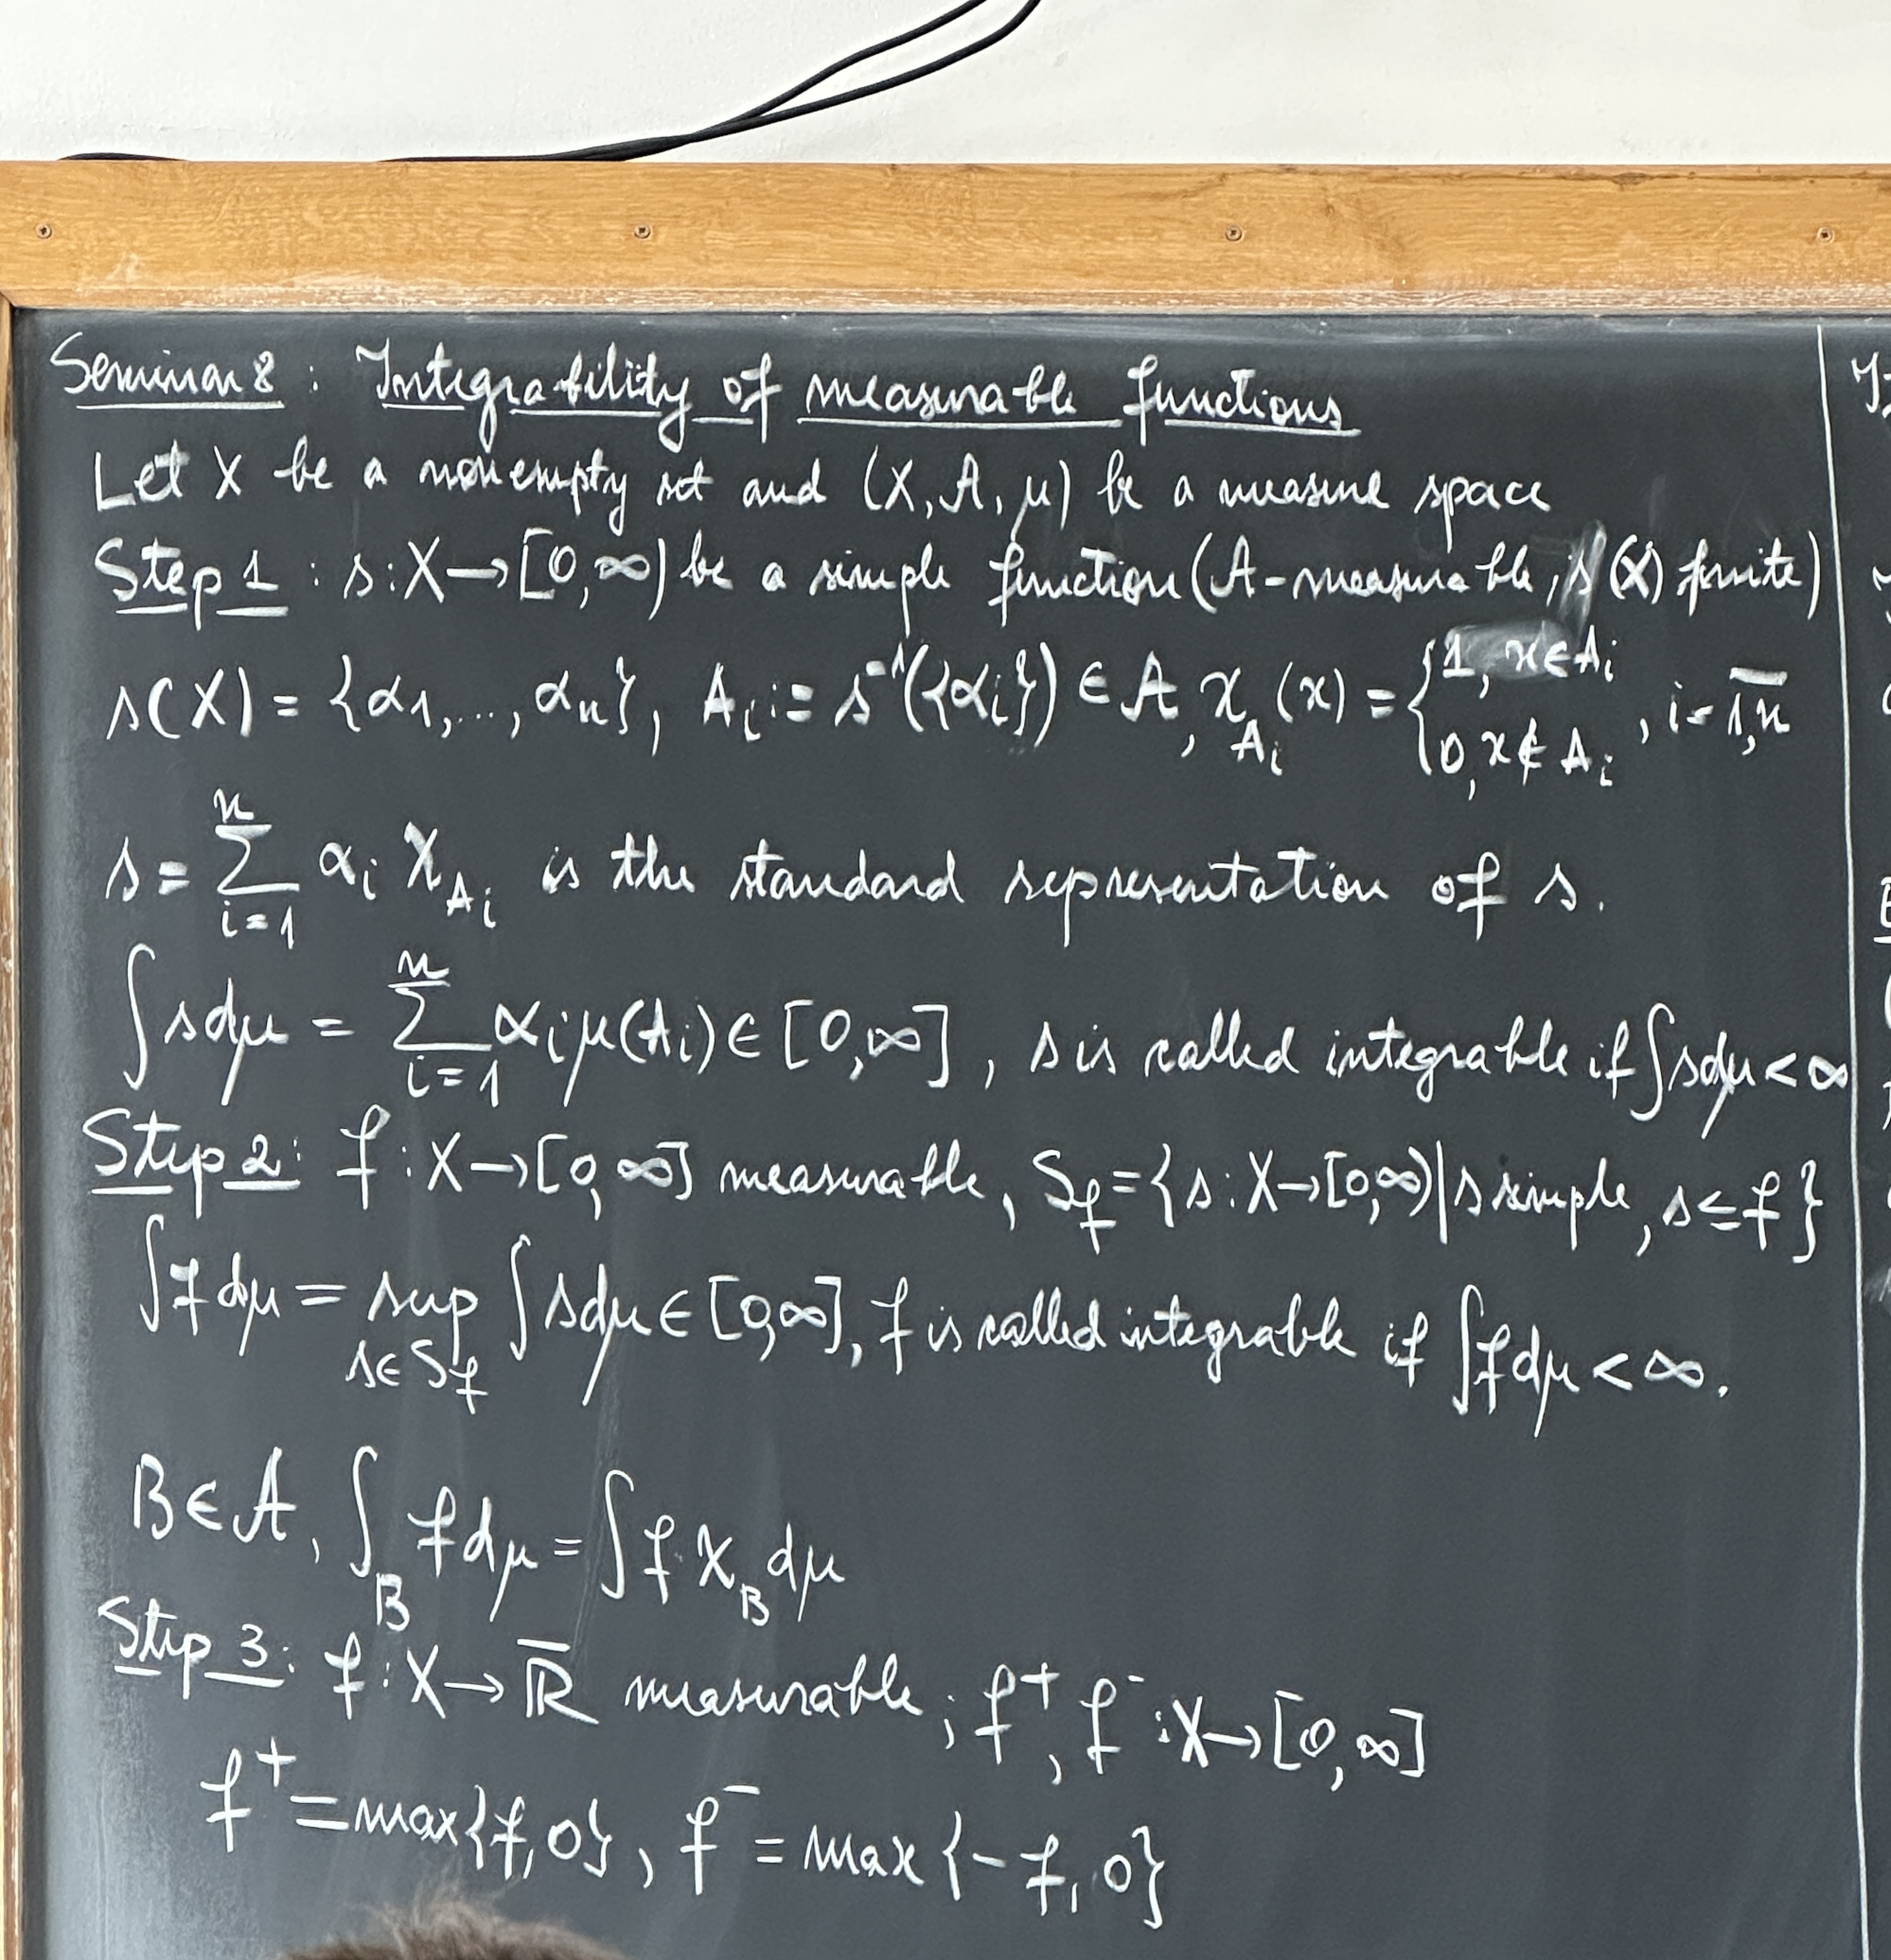 Seminar 8 : Integrability of measurable functions
Let X be a nonempty set and (X, A, μ) be a measure space
Step 1 : s : X → [0, ∞) be a simple function (A-measurable, s(X) finite)
s(X) = {α₁, ..., αₙ}, Aᵢ := s⁻¹({αᵢ}) ∈ A, χ_{Aᵢ}(x) = { 1, x ∈ Aᵢ ; 0, x ∉ Aᵢ , i = \overline{1,n}
s = ∑_{i=1}^{n} αᵢ χ_{Aᵢ} is the standard representation of s.
∫ s dμ = ∑_{i=1}^{n} αᵢ μ(Aᵢ) ∈ [0, ∞] , s is called integrable if ∫ s dμ < ∞
Step 2 : f : X → [0, ∞] measurable, S_f = {s : X → [0, ∞) | s simple, s ≤ f}
∫ f dμ = sup_{s ∈ S_f} ∫ s dμ ∈ [0, ∞], f is called integrable if ∫ f dμ < ∞.
B ∈ A, ∫_B f dμ = ∫ f · χ_B dμ
Step 3 : f : X → \overline{ℝ} measurable ; f⁺, f⁻ : X → [0, ∞]
f⁺ = max{f, 0}, f⁻ = max{-f, 0}